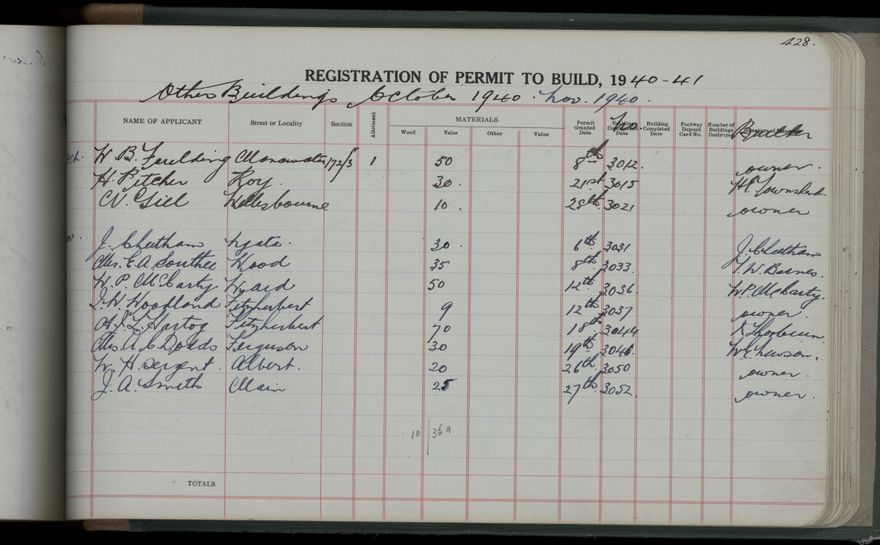 428.
REGISTRATION OF PERMIT TO BUILD, 1940-41
Other Buildings October 1940. Nov. 1940.
NAME OF APPLICANT Street or Locality Section Allotment MATERIALS Wood Value Other Value Permit Granted Date No. Building Completed Date Footway Deposit Card No. Number of Buildings Destroyed Builder
W. B. Faulding Manawatu 172/3 1 50 8th 3012. owner
H. Pitcher Roy. 30. 21st 3015 H. Townshend.
W. Gill Featherbourne 10. 28th 3021 owner
J. Cheetham Lyata. 30. 6th 3031 J. Cheetham
Mrs. E. A. Southee Wood 35 8th 3033. T. W. Barnes.
W. P. McCarty Ward 50 12th 3036. W. P. McCarty.
J. W. Woodland Fitzherbert 9 12th 3037 owner.
Hartog Fitzherbert 70 18th 3044
Mrs. A. C. Dodds Ferguson 30 19th 3046. Lawson.
W. H. Sergent. Albert. 20 26th 3050 owner.
J. A. Smith Main 25 27th 3052. owner.
10 369
TOTALS